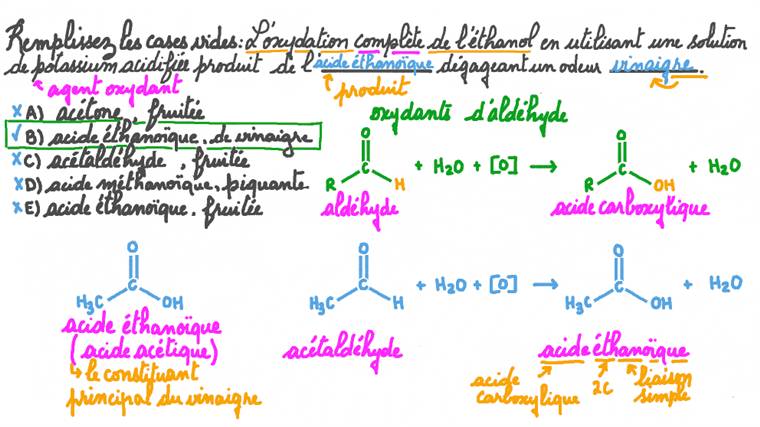 Remplissez les cases vides: L'oxydation complète de l'éthanol en utilisant une solution
de potassium acidifiée produit de l'acide éthanoïque dégageant un odeur vinaigre.
agent oxydant
produit
x A) acétone, fruitée
✓ B) acide éthanoïque, de vinaigre
x C) acétaldéhyde, fruitée
x D) acide méthanoïque, piquante
x E) acide éthanoïque, fruitée
oxydants d'aldéhyde
O O
R C H + H2O + [O] → R C OH + H2O
aldéhyde acide carboxylique
O O O
H3C C OH H3C C H + H2O + [O] → H3C C OH + H2O
acide éthanoïque
(acide acétique) acétaldéhyde acide éthanoïque
↳ le constituant
principal du vinaigre
acide
carboxylique
2C
liaison
simple